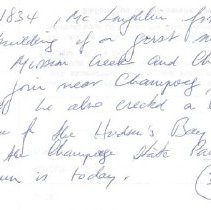 1834, McLoughlin
building of a grist
Mission Creek and Ch
join near Champoeg,
he also erected a
the Hudson's Bay
the Champoeg State Pa
is today.